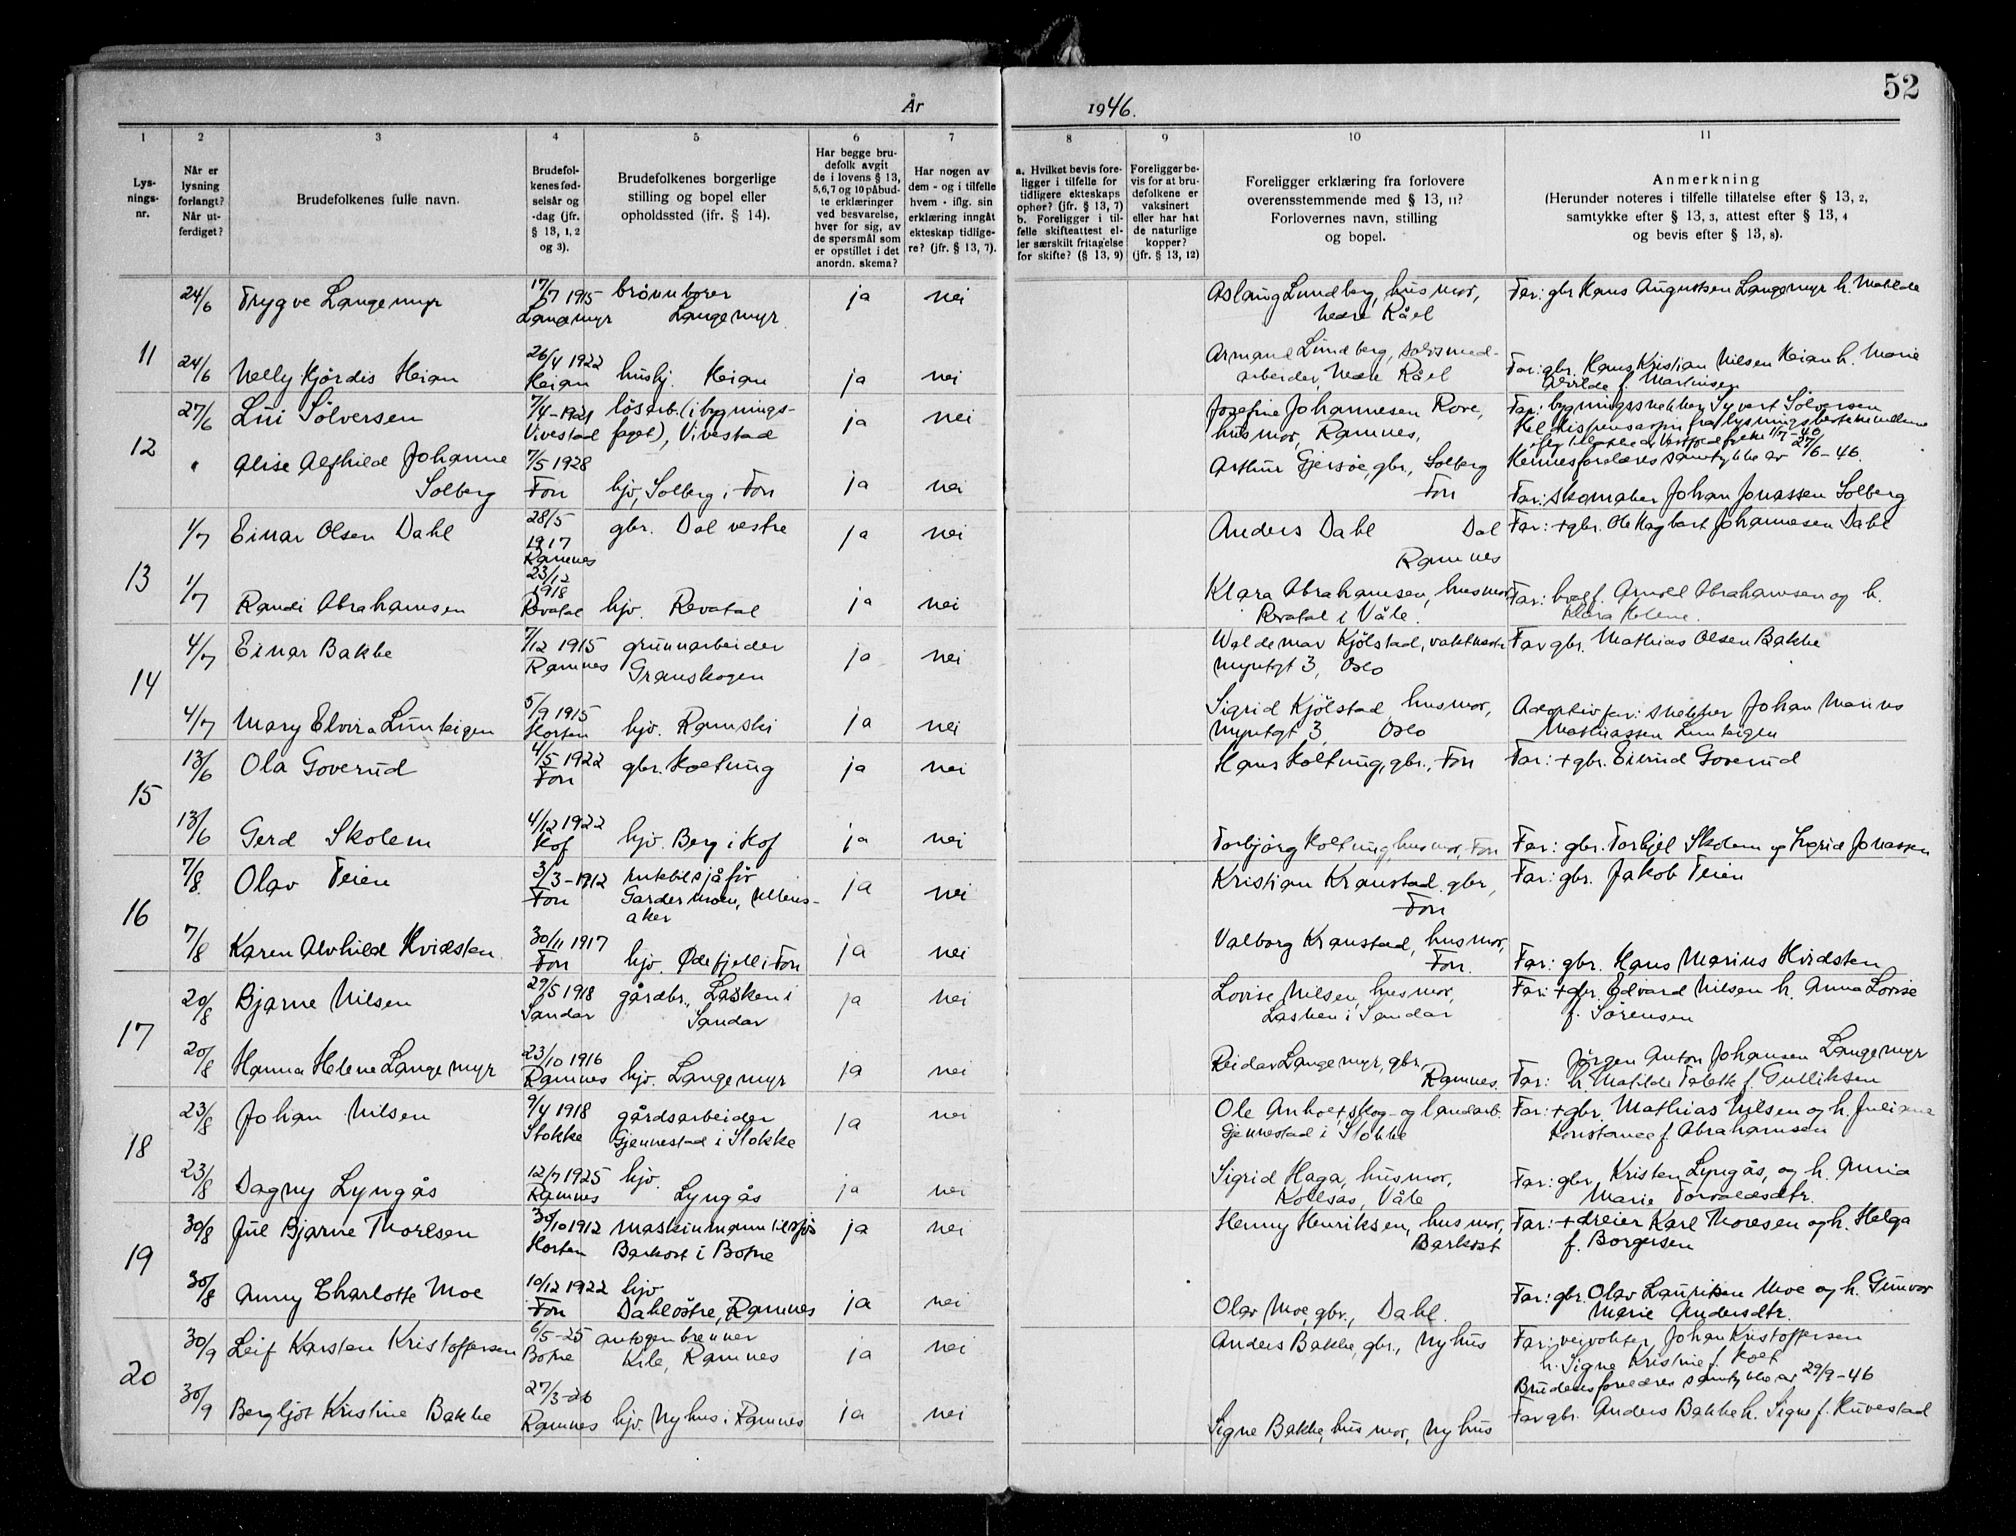 52
År 1946.
1 2 3 4 5 6 7 8 9 10 11
Lys-
nings-
nr.
Når er
lysning
forlangt?
Når ut-
ferdiget?
Brudefolkenes fulle navn.
Brudefol-
kenes fød-
selsår og
-dag (jfr.
§ 13, 1, 2
og 3).
Brudefolkenes borgerlige
stilling og bopel eller
opholdssted (ifr. § 14).
Har begge bru-
defolk avgit
de i lovens § 13,
5, 6, 7 og 10 påbud-
te erklæringer
ved besvarelse,
hver for sig, av
de spørsmål som
er opstillet i det
anordn. skema?
Har nogen av
dem - og i tilfelle
hvem - iflg. sin
erklæring inngått
ekteskap tidlige-
re? (jfr. § 13, 7).
a. Hvilket bevis fore-
ligger i tilfelle for
tidligere ekteskaps
ophør? (jfr. § 13, 7)
b. Foreligger i til-
felle skifteattest el-
ler særskilt fritagelse
for skifte? (§ 13, 9)
Foreligger be-
vis for at bru-
defolkene er
vaksinert
eller har hat
de naturlige
kopper?
(jfr. § 13, 12)
Foreligger erklæring fra forlovere
overensstemmende med § 13, 11?
Forlovernes navn, stilling
og bopel.
Anmerkning
(Herunder noteres i tilfelle tillatelse efter § 13, 2,
samtykke efter § 13, 3, attest efter § 13, 4
og bevis efter § 13, 8).
11
24/6 Trygve Langemyr 17/7 1915 brønnborer ja nei Aslaug Lundberg, husmor, Far: gbr Hans Augustsen Langemyr h. Matilde
Langemyr Langemyr Nedre Råel
24/6 Nelly Hjørdis Heian 26/4 1922 Heian hushj. Heian ja nei Armand Lundberg, Far: gbr. Hans Kristian Nilsen Heian h. Marie
arbeider, Nedre Råel Alvilde f. Martinsen
12
27/6 Lui Sölversen 7/4-1921 lösarb. (i bygnings- ja nei Josefine Johannesen Rove, Far: bygningssnekker Syvert Sölversen
Vivestad faget), Vivestad husmor, Ramnes,
" Alise Alfhild Johanne 7/5 1928 Arthur Gjersøe, gbr., Solberg Hennes foreldres samtykke av 27/6-46.
Solberg Fon hjv, Solberg i Fon ja nei Fon Far: skomaker Johan Jonassen Solberg
13
1/7 Einar Olsen Dahl 28/5 1917 Ramnes gbr. Dal vestre ja nei Anders Dahl Dal Far: + gbr. Ole Hagbart Johannesen Dahl
Ramnes
1/7 Randi Abrahamsen 23/12 1918 Revatal hjv. Revatal ja nei Klara Abrahamsen, husmor Far: Arnold Abrahamsen og h.
Revatal i Våle. Klara Helene.
14
4/7 Einar Bakke 7/12 1915 grunnarbeider ja nei Waldemar Kjölstad, Far gbr. Mathias Olsen Bakke
Ramnes Granskogen Myntgt 3, Oslo
4/7 Mary Elvira Linteigen 5/9 1915 Horten hjv. Ramski ja nei Sigrid Kjölstad husmor, Adoptivfar: snekker Johan Marius
Myntgt 3, Oslo Mathiassen Linteigen
15
13/6 Ola Goverud 4/5 1922 Fon gbr. Holtung ja nei Hans Holtung, gbr., Fon Far: + gbr. Eivind Goverud
13/6 Gerd Skolem 4/12 1922 Hof hjv. Berg i Hof ja nei Torbjörg Holtung, husmor, Fon Far: gbr. Torkjel Skolem og Ingrid Jonassen
16
7/8 Olav Teien 3/3-1912 rutebilsjåför ja nei Kristian Kranstad gbr, Far: gbr. Jakob Teien
Fon Gardermoen, Ullens- Fon
aker
7/8 Karen Alvhild Hvidsten 30/11 1917 Fon hjv. Ødefjell i Fon ja nei Valborg Kranstad, husmor, Far: gbr. Hans Marius Hvidsten
Fon.
17
20/8 Bjarne Nilsen 29/5 1918 gårdbr., Lasken i ja nei Lovise Nilsen, husmor, Far: + gbr. Edvard Nilsen h. Anna Lovise
Sandar Sandar Lasken i Sandar f. Sörensen
20/8 Hanna Helene Langemyr 23/10 1916 Ramnes hjv. Langemyr ja nei Reidar Langemyr, gbr, Far: Jörgen Anton Johansen Langemyr
Ramnes. h. Matilde f. Gulliksen
18
23/8 Johan Nilsen 9/4 1918 gårdsarbeider ja nei Ole Anholt skog- og landarb. Far: + gbr. Mathias Nilsen og h. Juliane
Stokke Gjennestad i Stokke Gjennestad i Stokke Konstance f. Abrahamsen
23/8 Dagny Lyngås 12/7 1925 hjv. Ramnes Lyngås ja nei Sigrid Haga, husmor, Far: gbr Kristen Lyngås, og h. Anna
Kollsås, Våle Marie Torvaldsdtr.
19
30/8 Jul Bjarne Thorlsen 30/10 1912 maskinmann tilsjös ja nei Henny Henriksen, husmor, Far: + dreier Karl Thoresen og h. Helga
Horten Barkost i Botne Barkost f. Borgersen
30/8 Anny Charlotte Moe 10/12 1922 hjv Fon Dahl östre, Ramnes ja nei Olav Moe, gbr., Dahl. Far: gbr. Olav Lauritsen Moe og h. Gunvor
Marie Andersdtr.
20
30/9 Leif Karsten Kristoffersen 6/5-25 autogenbrenner ja nei Anders Bakke, gbr., Nyhus Far: veivokter Johan Kristoffersen
Botne Kile, Ramnes h. Signe Kristine f. Holt
Brudens foreldres samtykke av 29/9-46
30/9 Bergljot Kristine Bakke 27/3-26 Ramnes hjv. Nyhus i Ramnes ja nei Signe Bakke, husmor, Nyhus Far gbr. Anders Bakke h. Signe f. Huvestad